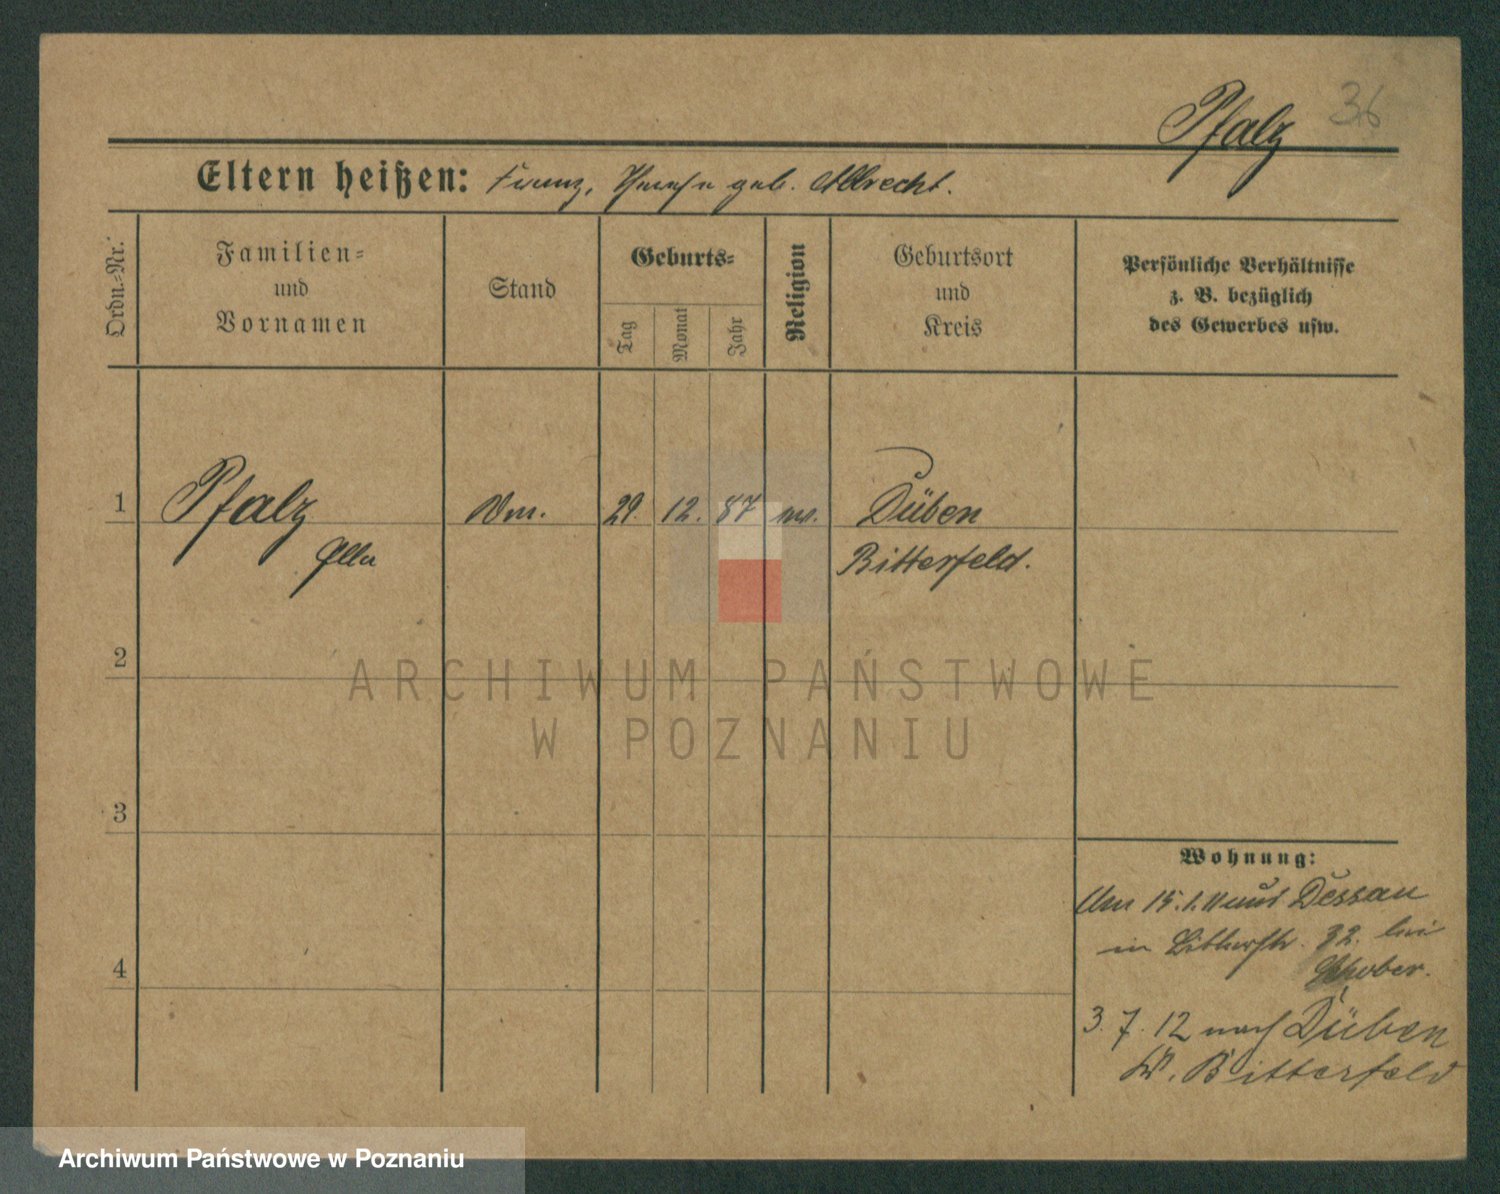 Pfalz 36
Eltern heißen: Franz, Therese geb. Albrecht.
Ordn.=Nr.
Familien=
und
Vornamen
Stand
Geburts=
Tag
Monat
Jahr
Religion
Geburtsort
und
Kreis
Persönliche Verhältnisse
z. B. bezüglich
des Gewerbes usw.
1 Pfalz 29. 12. 87 Düben
Ella Bitterfeld.
2
3
4
Wohnung:
15.1.11 aus Dessau
in 32. bei
3. 7. 12 nach Düben
Kr. Bitterfeld
ARCHIWUM PAŃSTWOWE
W POZNANIU
Archiwum Państwowe w Poznaniu